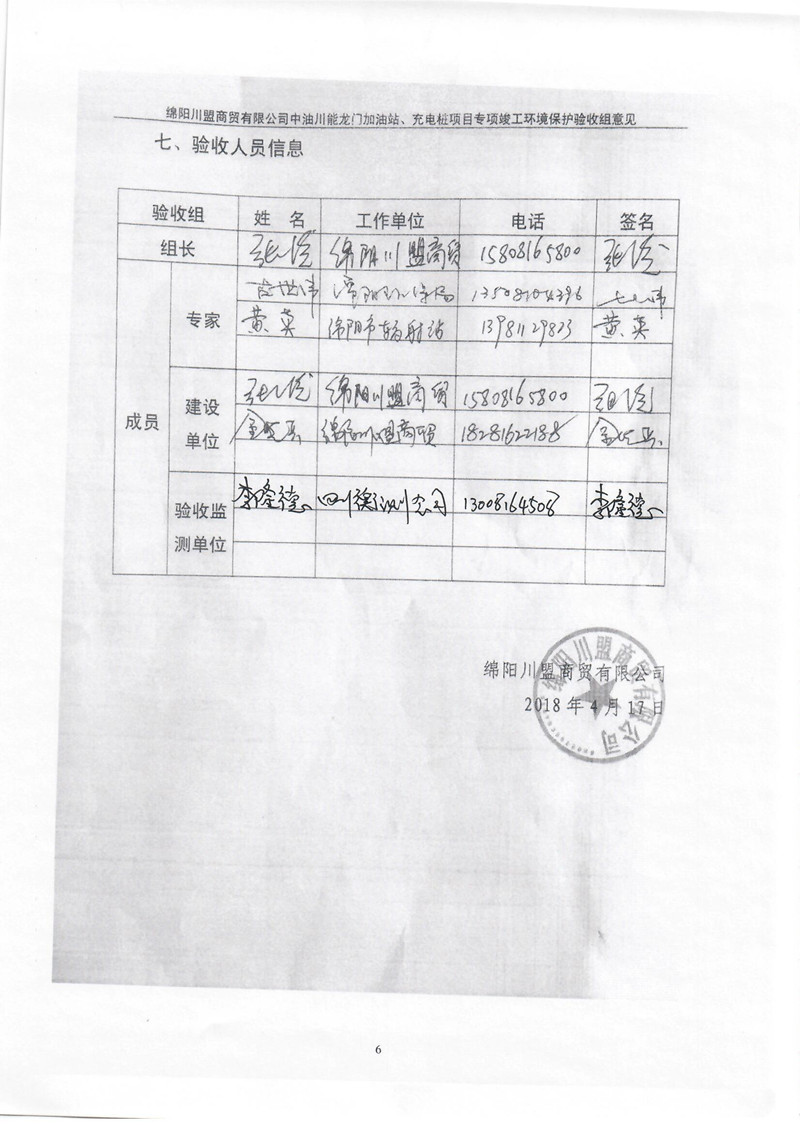 绵阳川盟商贸有限公司中油川能龙门加油站、充电桩项目专项竣工环境保护验收组意见
七、验收人员信息
验收组 姓 名 工作单位 电话 签名
组长 张 绵阳川盟商贸 15808165800 张
专家
13508104396
黄英 绵阳市辐射站 13981129823 黄英
成员
建设单位
张 绵阳川盟商贸 15808165800 张
绵阳川盟商贸 18281622188
验收监测单位
李隆德 四川 公司 13008164508 李隆德
绵阳川盟商贸有限公司
2018年4月17日
绵阳川盟商贸有限公司
6